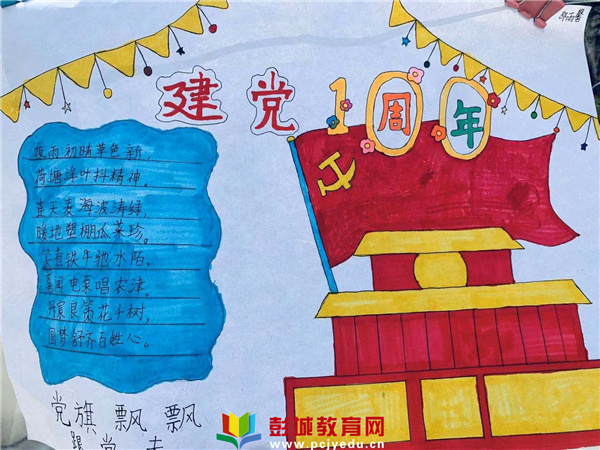 建党100周年
雨初晴草色新，
荷塘绿叶抖精神。
天麦海波涛绿，
暖地塑棚瓜菜珍。
看铁牛驰水陌，
喜闻电泵唱农津。
花千树，
圆梦舒齐百姓心。
党旗 飘飘
跟党走
彭城教育网
www.pcjyedu.cn